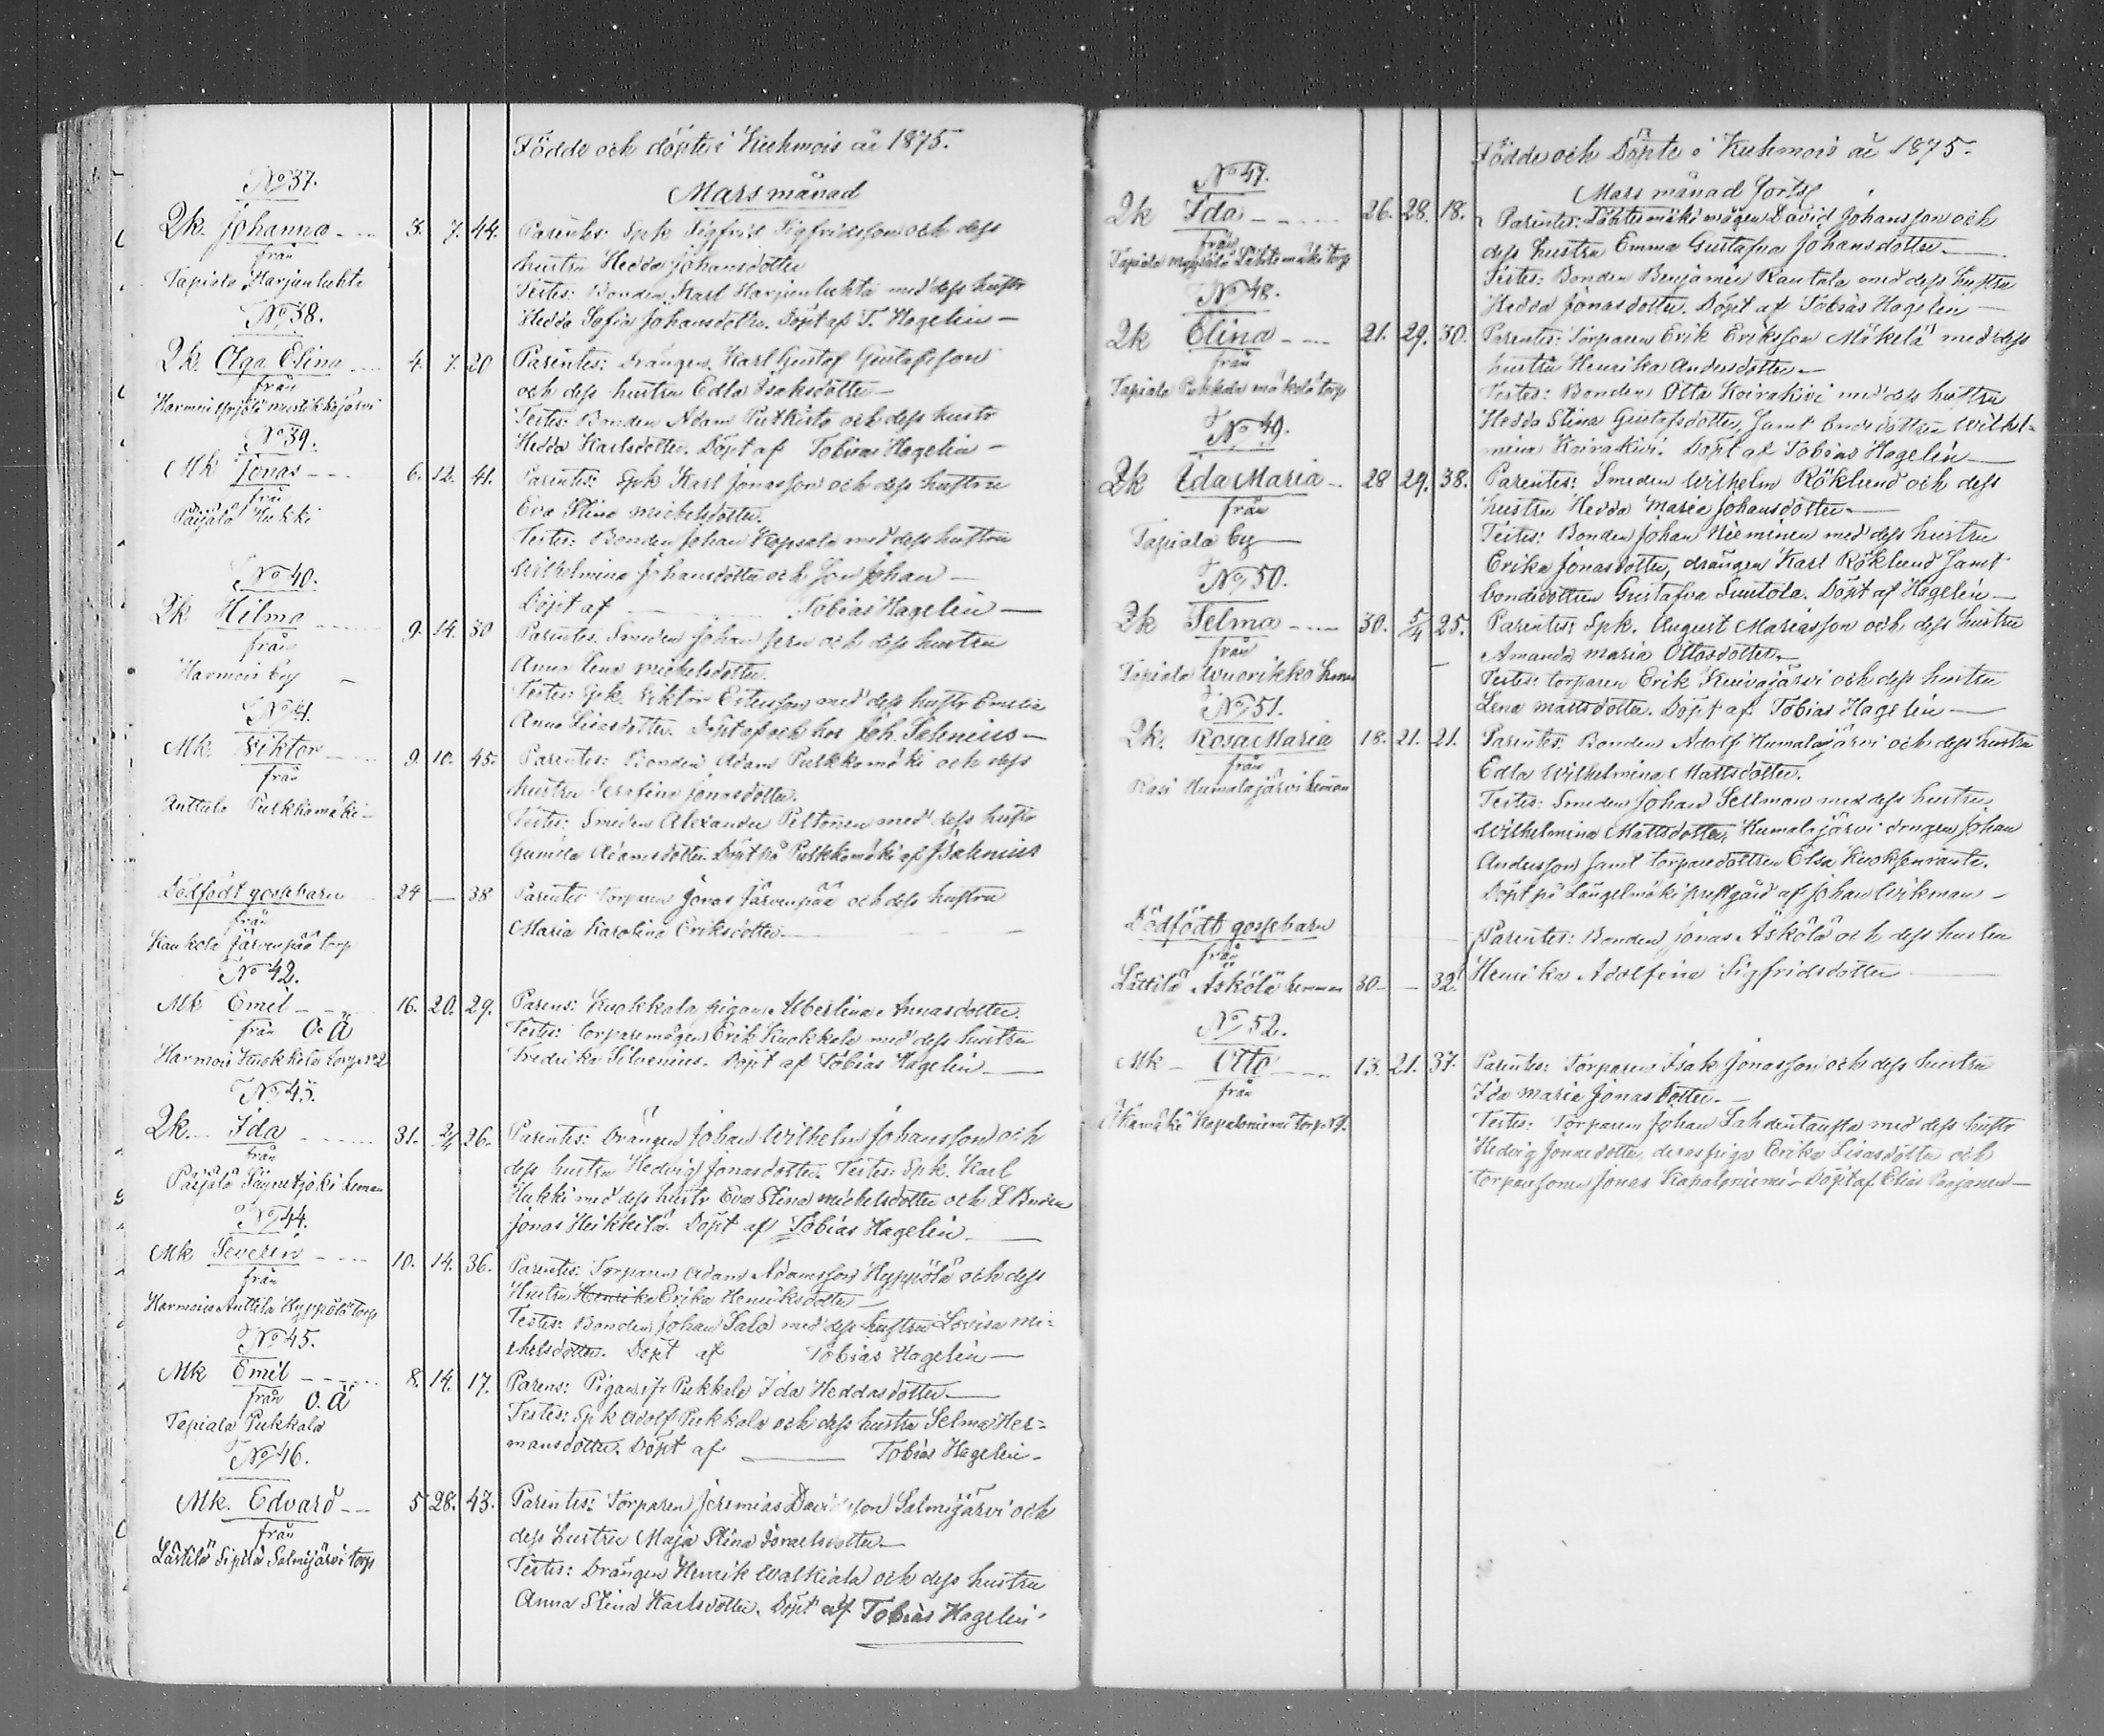 Födde och döpte i Kuhmois år 1875.
Mars månad
No 37.
Qk. Johanna 3. 7. 44.
från
Tapiala Harjunluhta
Parentes: Spk Sigfrid Sigfridsson och dess
hustru Hedda Johansdotter
Testes: Bonden Karl Harjunluhta med dess hustr
Hedda Sofia Johansdotter. Döpt af T. Hagelin —
No 38.
Qk. Olga Elina 4. 7. 20
från
Harmois
Parentes: Drängen Karl Gustaf Gustafsson
och dess hustru Edla Isaksdotter —
Testes: Bonden Adam Putkisto och dess hustr
Hedda Karlsdotter. Döpt af Tobias Hagelin —
No 39.
Mk Jonas 6. 12. 41.
från
Päijälä Hukki
Parentes: Spk Karl Jonasson och dess hustru
Eva Stina Michelsdotter.
Testes: Bonden Johan Kopsala med dess hustru
Wilhelmina Johansdotter och Son Johan —
Döpt af — Tobias Hagelin —
No 40.
Qk Hilma 9. 14. 30
från
Harmois by
Parentes: Smeden Johan Jern och dess hustru
Anna Lena Michelsdotter.
Testes: Spk. Viktor med dess hustr Emilia
Anna Lisasdotter. Döpt af och hos Joh. Salenius —
No 41.
Mk. Viktor 9. 10. 45.
från
Anttila Pukkamäki —
Parentes: Bonden Adam Pukkamäki och dess
hustru Serafina Jonasdotter.
Testes: Smeden Alexander Peltonen med dess hustr
Gunilla Adamsdotter. Döpt på Pukkamäki af J Salenius
Dödfödt gossebarn 24 — 38
från
Kaukola Järvenpää torp
Parentes Torparen Jonas Järvenpää och dess hustru
Maria Karolina Eriksdotter. —
No 42.
Mk Emil 16. 20. 29.
från O. Ä
Harmois Kuokkala torp No 2
Parens: Kuokkala pigan Albertina Annasdotter.
Testes: torparemågen Erik Kuokkala med dess hustru
Fredrika Silvenius. Döpt af Tobias Hagelin —
No 43.
Qk. Ida 31. 2/4 26.
från
Päijälä Säynetjoki heman
Parentes: Drängen Johan Wilhelm Johansson och
dess hustru Hedvig Jonasdotter. Testes: Spk. Karl
Hukki med dess hustr Eva Stina Michelsdotter och L Bonden
Jonas Heikkilä. Döpt af Tobias Hagelin. —
No 44.
Mk Severin 10. 14. 36.
från
Harmois Anttila Hyppölä torp
Parentes: Torparen Adam Adamsson Hyppölä och dess
Hustru Henrika Erika Henriksdotter —
Testes: Bonden Johan Salo med dess hustru Lovisa Mi=
chelsdotter. Döpt af Tobias Hagelin —
No 45.
Mk Emil 8. 14. 17.
från O. Ä
Tapiala Pukkala
Parens: Pigan ifr Pukkala Ida Heddasdotter —
Testes: Spk Adolf Pukkala och dess hustru Selma Her=
mansdotter. Döpt af — Tobias Hagelin —
No 46.
Mk. Edvard 5 28. 43.
från
Lästilä Sipilä Salmijärvi torp
Parentes: Torparen Jeremias Davidsson Salmijärvi och
dess hustru Maja Stina Israelsdotter —
Testes: Drängen Henrik Walkiala och dess hustru
Anna Stina Karlsdotter. Döpt af Tobias Hagelin
Födde och Döpte i Kuhmois år 1875.
Mars månad forts
No 47.
Qk Ida 26. 28. 18.
från
Tapiala Lähtemäki torp
Parentes: Lähtemäki mågen David Johansson och
dess hustru Emma Gustafva Johansdotter —
Testes: Bonden Benjamin Rantala med dess hustru
Hedda Jonasdotter. Döpt af Tobias Hagelin —
No 48.
Qk Elina 21. 29. 30.
från
Tapiala Pukkala Mäkelä torp
Parentes: Torparen Erik Eriksson Mäkelä med dess
hustru Henrika Andersdotter —
Testes: Bonden Otto Koirakivi med dess hustru
Hedda Stina Gustafsdotter, samt bondedottren Wilhel=
mina Koirakivi. Döpt af Tobias Hagelin —
No 49.
Qk Ida Maria 28 29. 38.
från
Tapiala by
Parentes: Smeden Wilhelm Röklund och dess
hustru Hedda Maria Johansdotter —
Testes: Bonden Johan Nieminen med dess hustru
Erika Jonasdotter, drängen Karl Röklund samt
bondedottren Gustafva Suutola. Döpt af Hagelin —
No 50.
Qk Selma 30. 5/4 25.
från
Tapiala Wuorikko heman
Parentes: Spk. August Mariasson och dess hustru
Amanda Maria Ottosdotter —
Testes: torparen Erik Kuivajärvi och dess hustru
Lena Mattsdotter. Döpt af Tobias Hagelin —
No 51.
Qk. Rosa Maria 18. 21. 21.
från
Rasi Humalajärvi heman
Parentes: Bonden Adolf Humalajärvi och dess hustru
Edla Wilhelmina Mattsdotter.
Testes: Smeden Johan Sellman med dess hustru
Wilhelmina Mattsdotter, Humalajärvi drngen Johan
Andersson samt torparedottren Elsa Kuoksenranta.
Döpt på Längelmäki prestgård af Johan Wikman —
Dödfödt gossebarn
från
Lästilä Äskölä heman 30 — 32
Parentes: Bonden Jonas Äskölä och dess hustru
Henrika Adolfina Sigfridsdotter —
No 52.
Mk Otto 13. 21. 37.
från
Kapaloniemi torp
Parentes: Torparen Isak Jonasson och dess hustru
Ida Maria Jonasdotter. —
Testes: Torparen Johan Lahdentausta med dess hustr
Hedvig Jonasdotter, deras piga Erika Lisasdotter och
torparsonen Jonas Kapaloniemi — Döpt af Elias Paajanen —